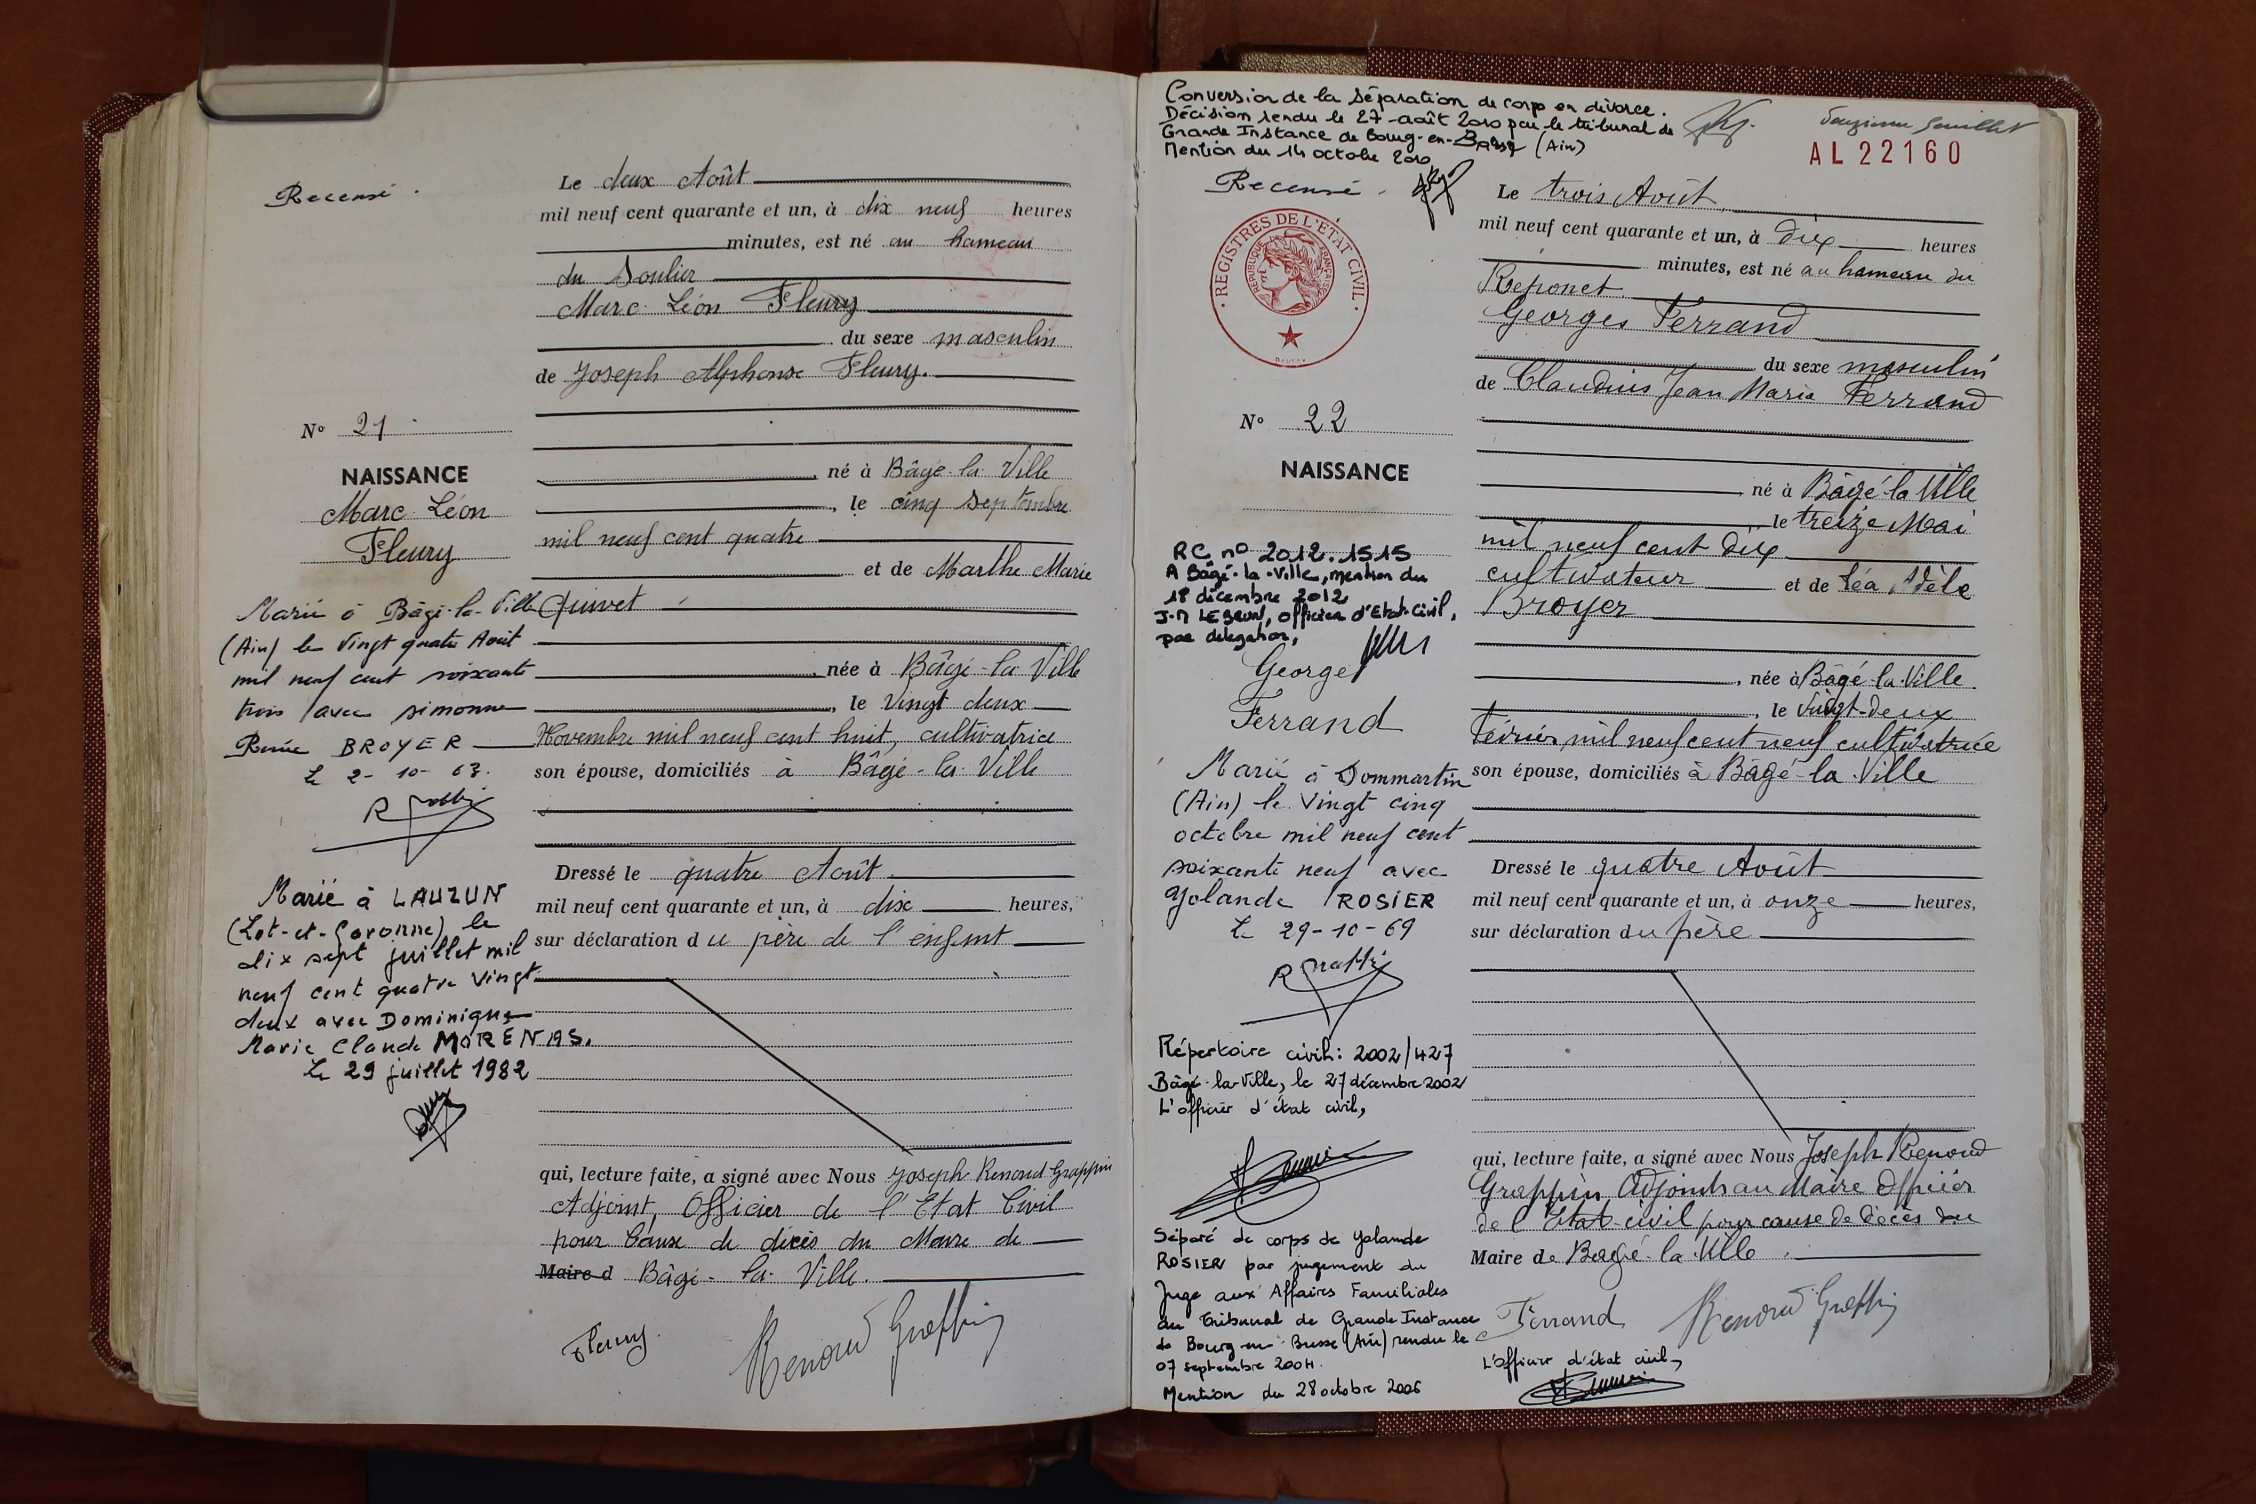 Recensé.
Le deux Août
mil neuf cent quarante et un, à dix neuf heures
minutes, est né au hameau
du Soulier
Marc Léon Fleury
du sexe masculin
de Joseph Alphonse Fleury.
N° 21
NAISSANCE
Marc Léon
Fleury
né à Bâgé-la-Ville
, le cinq septembre
mil neuf cent quatre
et de Marthe Marie
née à Bâgé-la-Ville
, le Vingt deux
Novembre mil neuf cent huit, cultivatrice
son épouse, domiciliés à Bâgé-la-Ville
Marié à Bâgé-la-Ville
(Ain) le vingt quatre Août
mil neuf cent soixante
trois avec Simonne
Renée BROYER
Le 2-10-63.
Marié à LAUZUN
(Lot-et-Garonne) le
dix sept juillet mil
neuf cent quatre vingt
deux avec Dominique
Marie Claude MORENAS.
Le 29 juillet 1982
Dressé le quatre Août
mil neuf cent quarante et un, à dix heures,
sur déclaration du père de l'enfant
qui, lecture faite, a signé avec Nous Joseph Renoud Grappin
Adjoint, Officier de l'Etat Civil
pour cause de décès du Maire de
Maire d Bâgé-la-Ville.
Fleury.
Renoud Grappin
Conversion de la séparation de corps en divorce.
Décision rendu le 27 août 2010 par le tribunal de
Grande Instance de Bourg-en-Bresse (Ain)
Mention du 14 octobre 2010
feuillet
AL22160
Recensé.
REGISTRES DE L'ÉTAT CIVIL
RÉPUBLIQUE FRANÇAISE
Le trois Août
mil neuf cent quarante et un, à dix heures
minutes, est né au hameau du
Reponet
Georges Ferrand
du sexe masculin
de Claudius Jean Marie Ferrand
N° 22
NAISSANCE
né à Bâgé-la-Ville
le treize Mai
mil neuf cent dix
cultivateur et de Léa, Adèle
Broyer
, née à Bâgé-la-Ville
, le vingt-deux
Février mil neuf cent neuf cultivatrice
son épouse, domiciliés à Bâgé-la-Ville
RC n° 2012.1515
A Bâgé-la-Ville, mention du
18 décembre 2012
J-M LEBRUN, officier d'Etat-Civil,
par délégation,
Georges
Ferrand
Marié à Dommartin
(Ain) le vingt cinq
octobre mil neuf cent
soixante neuf avec
Yolande ROSIER
Le 29-10-69
Répertoire civil: 2002/427
Bâgé-la-Ville, le 27 décembre 2002
L'officier d'état civil,
Séparé de corps de Yolande
ROSIER par jugement du
Juge aux Affaires Familiales
du Tribunal de Grande Instance
de Bourg-en-Bresse (Ain) rendu le
07 septembre 2004.
Mention du 28 octobre 2006
L'officier d'état civil,
Dressé le quatre Août
mil neuf cent quarante et un, à onze heures,
sur déclaration du père
qui, lecture faite, a signé avec Nous Joseph Renoud
Grappin Adjoint au Maire Officier
de l'Etat-civil pour cause de décès du
Maire de Bâgé-la-Ville.
Ferrand
Renoud Grappin